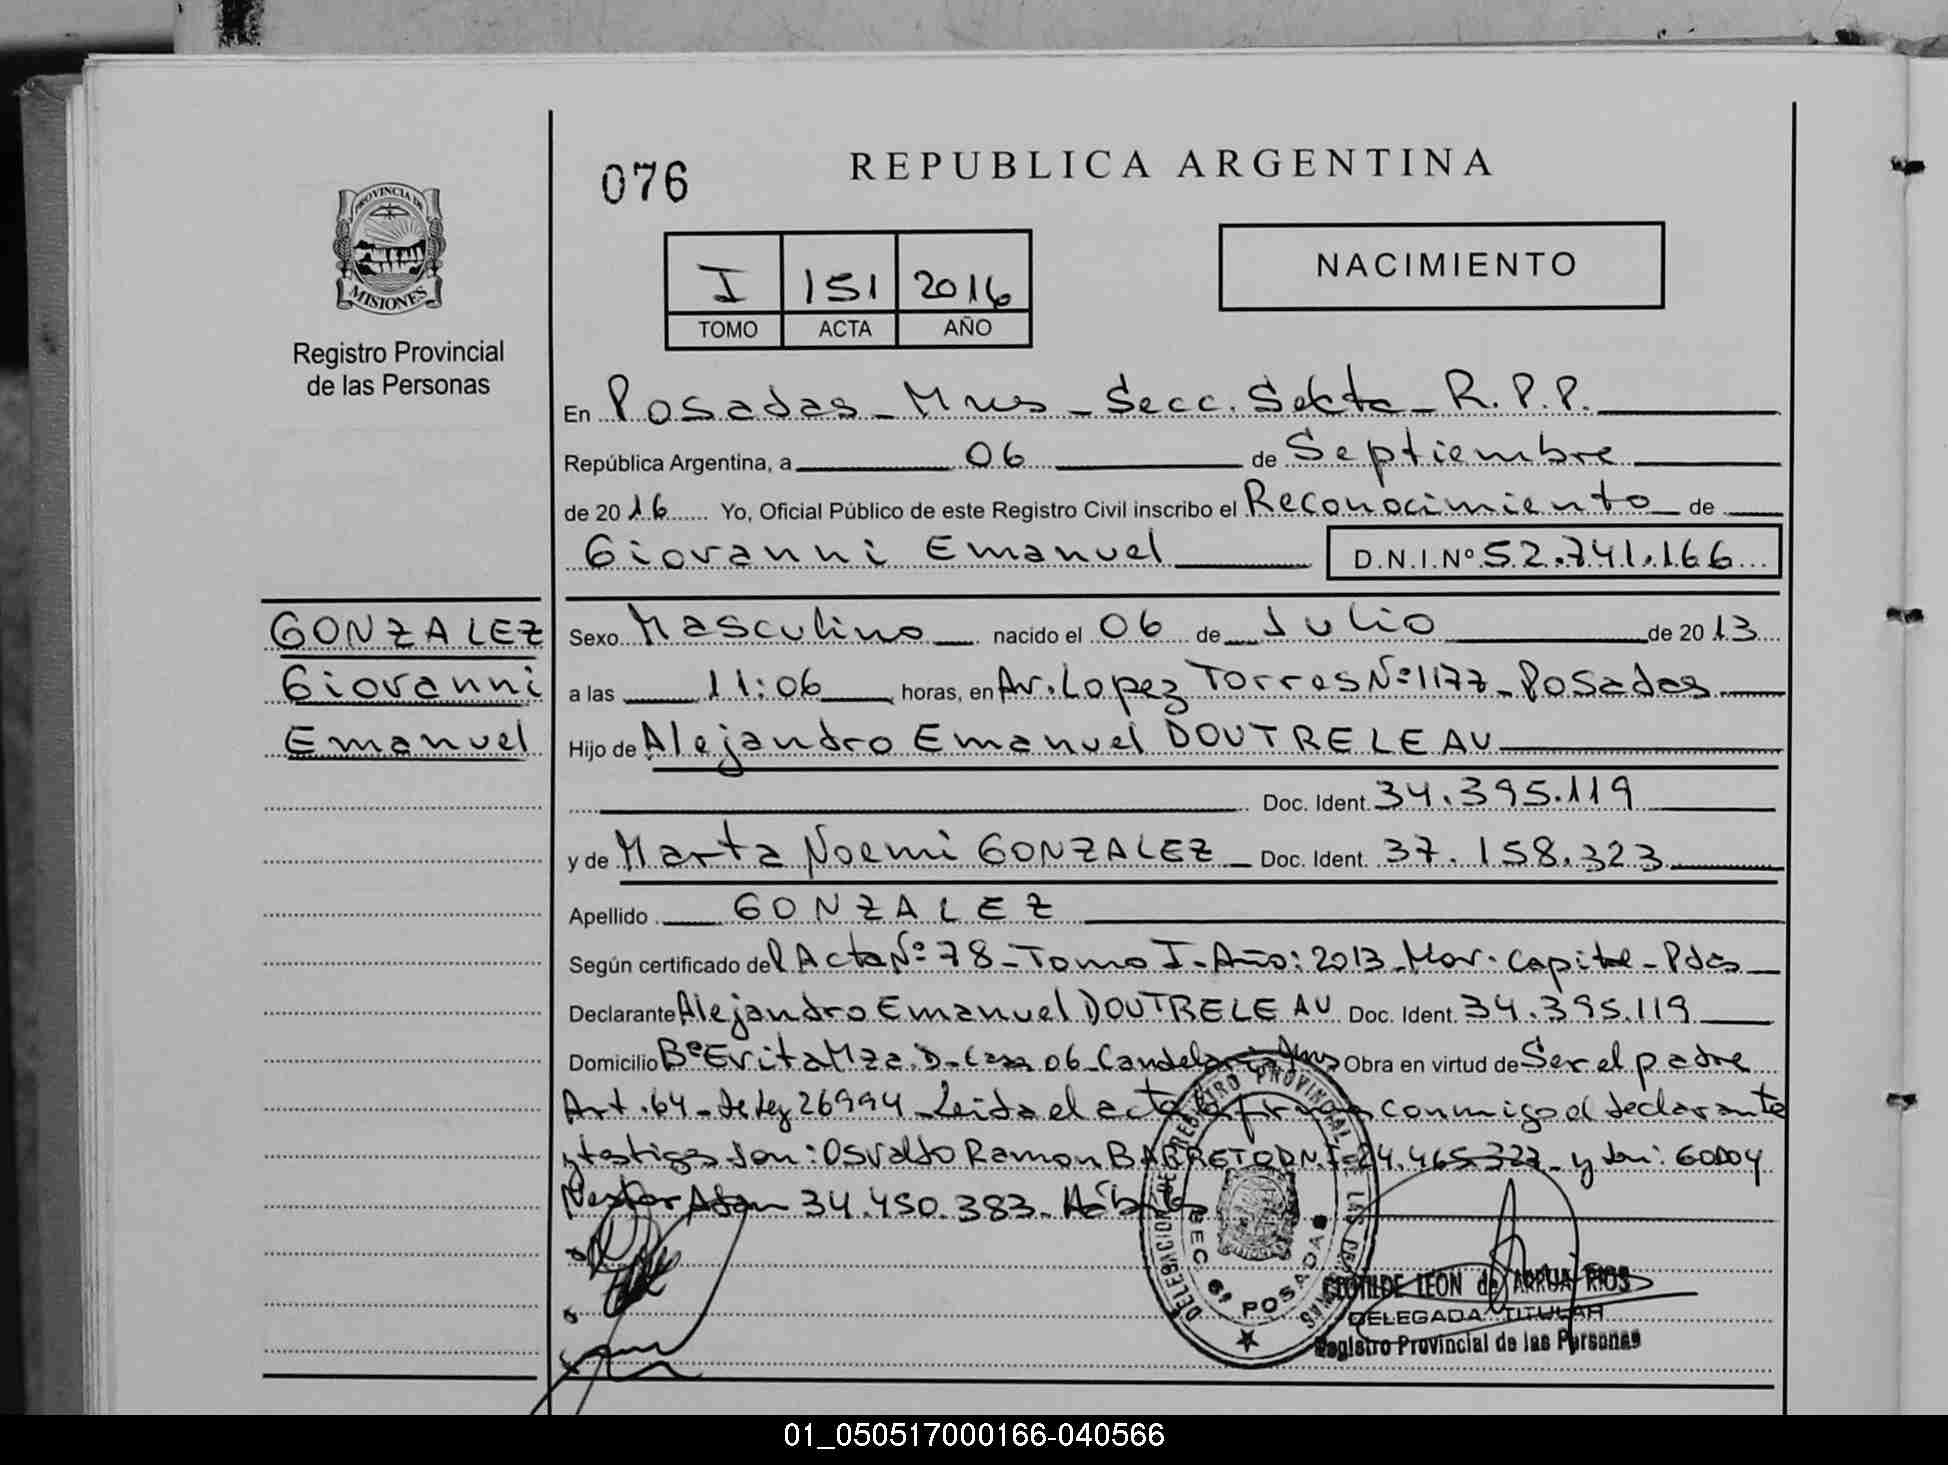 076
REPUBLICA ARGENTINA
PROVINCIA DE
MISIONES
Registro Provincial
de las Personas
I 151 2016
TOMO ACTA AÑO
NACIMIENTO
En Posadas - Mnes - Secc. Sexta - R.P.P.
República Argentina, a 06 de Septiembre
de 2016 Yo, Oficial Público de este Registro Civil inscribo el Reconocimiento de
Giovanni Emanuel D.N.I.Nº 52.741.166
GONZALEZ
Giovanni
Emanuel
Sexo Masculino nacido el 06 de Julio de 2013
a las 11:06 horas, en Av. Lopez Torres Nº 1177 - Posadas
Hijo de Alejandro Emanuel DOUTRELEAU
Doc. Ident. 34.395.119
y de Marta Noemi GONZALEZ Doc. Ident. 37.158.323
Apellido GONZALEZ
Según certificado del Acta Nº 78 - Tomo I - Año: 2013 - Mov. Capital - Pdas
Declarante Alejandro Emanuel DOUTRELEAU Doc. Ident. 34.395.119
Domicilio Bº Evita Mza. D - Casa 06 - Candelaria Mns Obra en virtud de Ser el padre
Art. 64 - de Ley 26994 - Leida el acta firman conmigo el declarante
y testigos son: Osvaldo Ramon BARRETO D.N.I. 24.465.327 - y son: GODOY
Nestor Adan 34.450.383 - Hábiles
DELEGACION DE REGISTRO PROVINCIAL DE LAS PERSONAS
SEC 6ª POSADAS
CLOTILDE LEON de ARRUA RIOS
DELEGADA TITULAR
Registro Provincial de las Personas
01_050517000166-040566